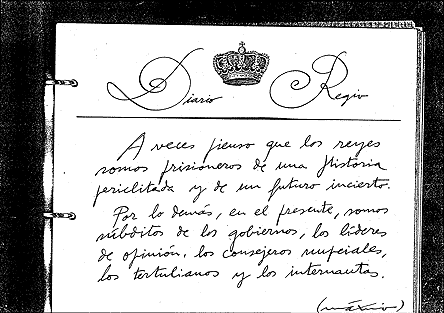 Diario Regio
A veces pienso que los reyes
somos prisioneros de una Historia
periclitada y de un futuro incierto.
Por lo demás, en el presente, somos
súbditos de los gobiernos, los líderes
de opinión, los consejeros nupciales,
los tertulianos y los internautas.
(máximo)